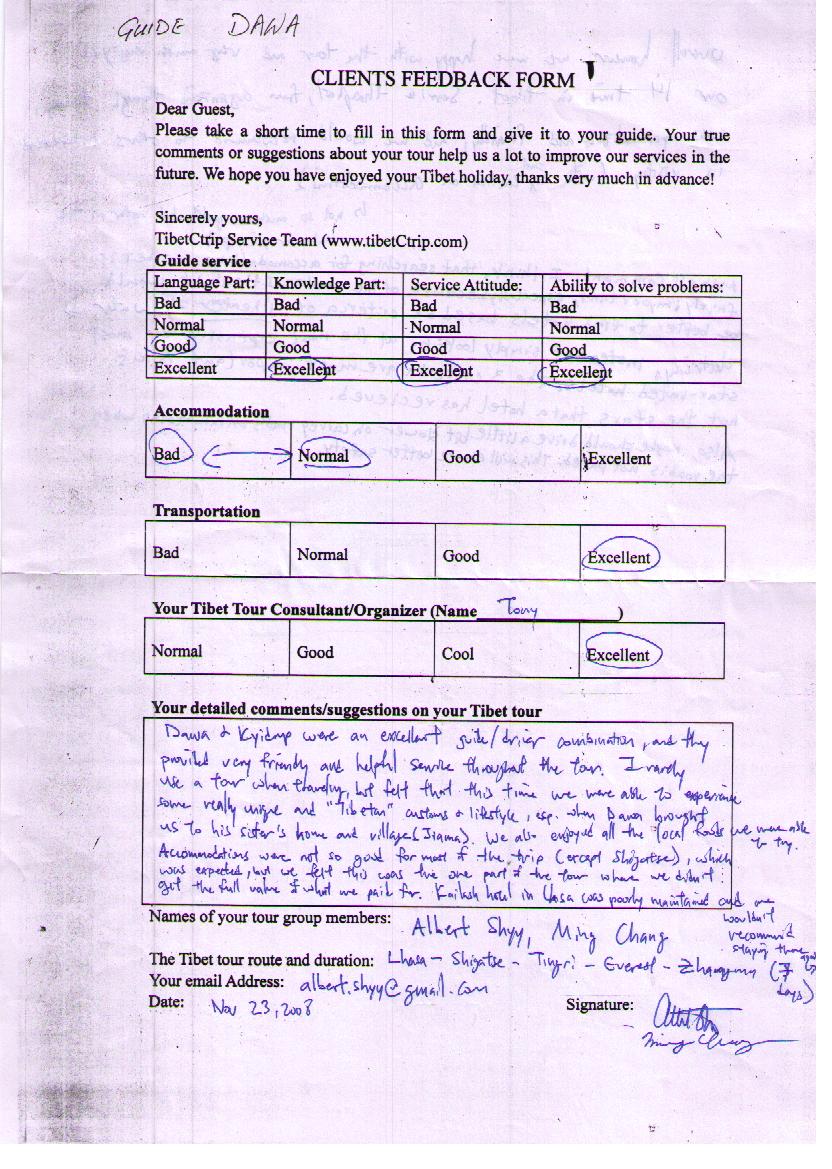 GUIDE DAWA
CLIENTS FEEDBACK FORM
Dear Guest,
Please take a short time to fill in this form and give it to your guide. Your true
comments or suggestions about your tour help us a lot to improve our services in the
future. We hope you have enjoyed your Tibet holiday, thanks very much in advance!
Sincerely yours,
TibetCtrip Service Team (www.tibetCtrip.com)
Guide service
Language Part: Knowledge Part: Service Attitude: Ability to solve problems:
Bad Bad Bad Bad
Normal Normal Normal Normal
Good Good Good Good
Excellent Excellent Excellent Excellent
Accommodation
Bad Normal Good Excellent
Transportation
Bad Normal Good Excellent
Your Tibet Tour Consultant/Organizer (Name Tony )
Normal Good Cool Excellent
Your detailed comments/suggestions on your Tibet tour
Dawa & were an excellent guide/driver combination, and they
provided very friendly and helpful service throughout the tour. I rarely
use a tour when traveling, but felt that this time we were able to experience
some really unique and "Tibetan" customs & lifestyle, esp. when Dawa brought
us to his sister's home and village (Jiama). We also enjoyed all the local foods we were able
to try.
Accommodations were not so good for most of the trip (except Shigatse), which
was expected, but we felt this was the one part of the tour where we didn't
get the full value of what we paid for. Kailash hotel in Lhasa was poorly maintained and we
wouldn't
recommend
staying there
again
Names of your tour group members: Albert Shyy, Ming Chang
The Tibet tour route and duration: Lhasa - Shigatse - Tingri - Everest - Zhangmu (7
days)
Your email Address: albert.shyy@gmail.com
Date: Nov 23, 2008 Signature:
Ming Chang